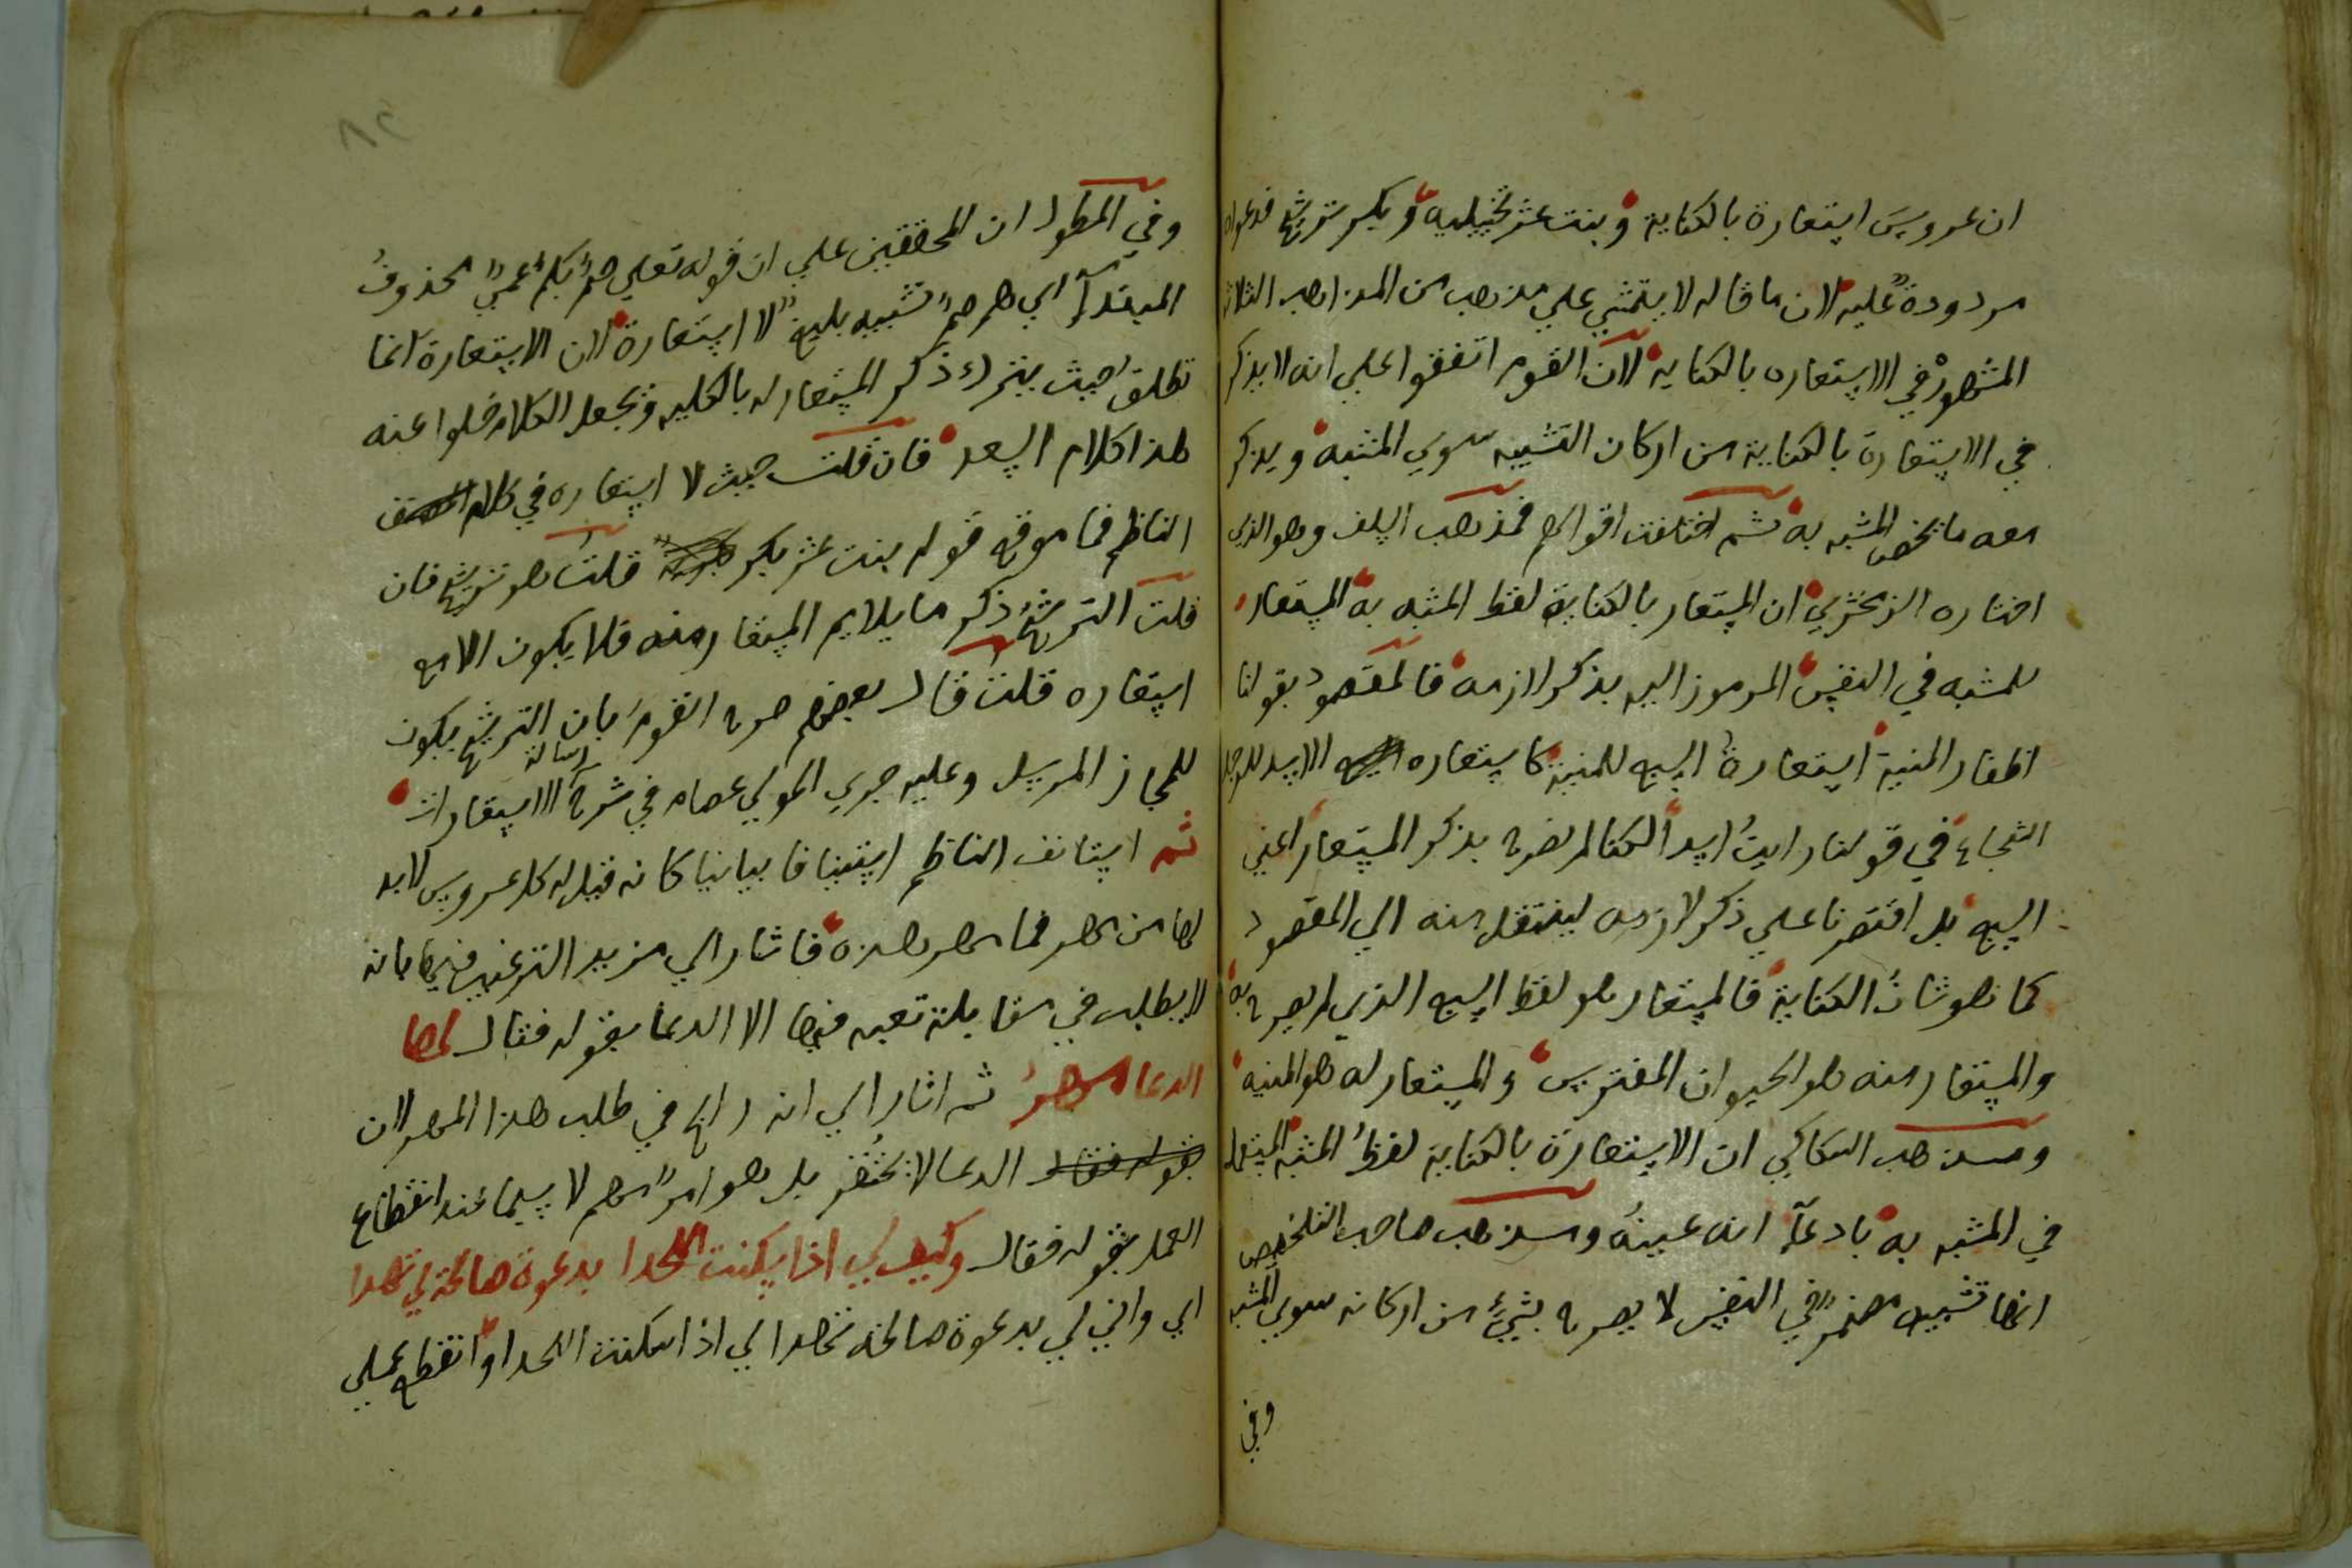 ان عروس استعارة بالكناية وبنت عشر تخييليه وبكر ترشيح فدعواه
مردودة عليه لان ما قاله لا يتمشي علي مذهب من المذاهب الثلاثه
المشهورة في الاستعاره بالكناية لان القوم اتفقوا علي انه لا يذكر
في الاستعارة بالكناية من اركان التشبيه سوي المشبه ويذكر
معه ما يخص المشبه به ثم اختلفت اقوالهم فمذهب السلف وهو الذي
اختاره الزمخشري ان المستعار بالكناية لفظ المشبه به المستعار
للمشبه في النفس المرموز اليه بذكر لازمه فالمقصود بقولنا
اظفار المنية استعارة السبع للمنية كاستعاره الاسد للرجل
الشجاع في قولنا رايت اسدا لكنا لم نصرح بذكر المستعار اعني
السبع بل اقتصرنا علي ذكر لازمه لينتقل منه الي المقصود
كما هو شان الكناية فالمستعار هو لفظ السبع الذي لم يصرح به
والمستعار منه هو الحيوان المفترس والمستعار له هو المنيه
ومذهب السكاكي ان الاستعارة بالكناية لفظ المشبه المستعمل
في المشبه به بادعاء انه عينه ومذهب صاحب التلخيص
انها تشبيه مضمر في النفس لا يصرح بشيء من اركانه سوي المشبه
وفي
٨٢
وفي المطول ان المحققين علي ان قوله تعلي صم بكم عمي محذوف
المبتدأ اي هم صم تشبيه بليغ لا استعارة لان الاستعارة انما
تطلق حيث يترك ذكر المستعار له بالكليه ويجعل الكلام خلوا عنه
هذا كلام السعد فان قلت حيث لا استعاره في كلام
الناظم فما موقع قوله بنت عشر بكر قلت هو ترشيح فان
قلت الترشيح ذكر ما يلايم المستعار منه فلا يكون الا مع
استعاره قلت قال بعضهم صرح القوم بان الترشيح يكون
للمجاز المرسل وعليه جري المولي عصام في شرح رسالة الاستعارات
ثم استانف الناظم استينافا بيانيا كانه قيل له كل عروس لابد
لها من مهر فما مهر هذه فاشار الي مزيد الترغيب فيها بانه
لا يطلب في مقابلة تعبه فيها الا الدعا بقوله فقال لها
الدعا مهر ثم اشار الي انه راج في طلب هذا المهر لان
الدعا لا يحتقر بل هو امر مهم لا سيما عند انقطاع
العمل بقوله فقال وكيف لي اذا سكنت اللحدا بدعوة صالحة لي تهدا
اي واني لي بدعوة صالحه تهدا لي اذا سكنت اللحدا وانقطع عملي